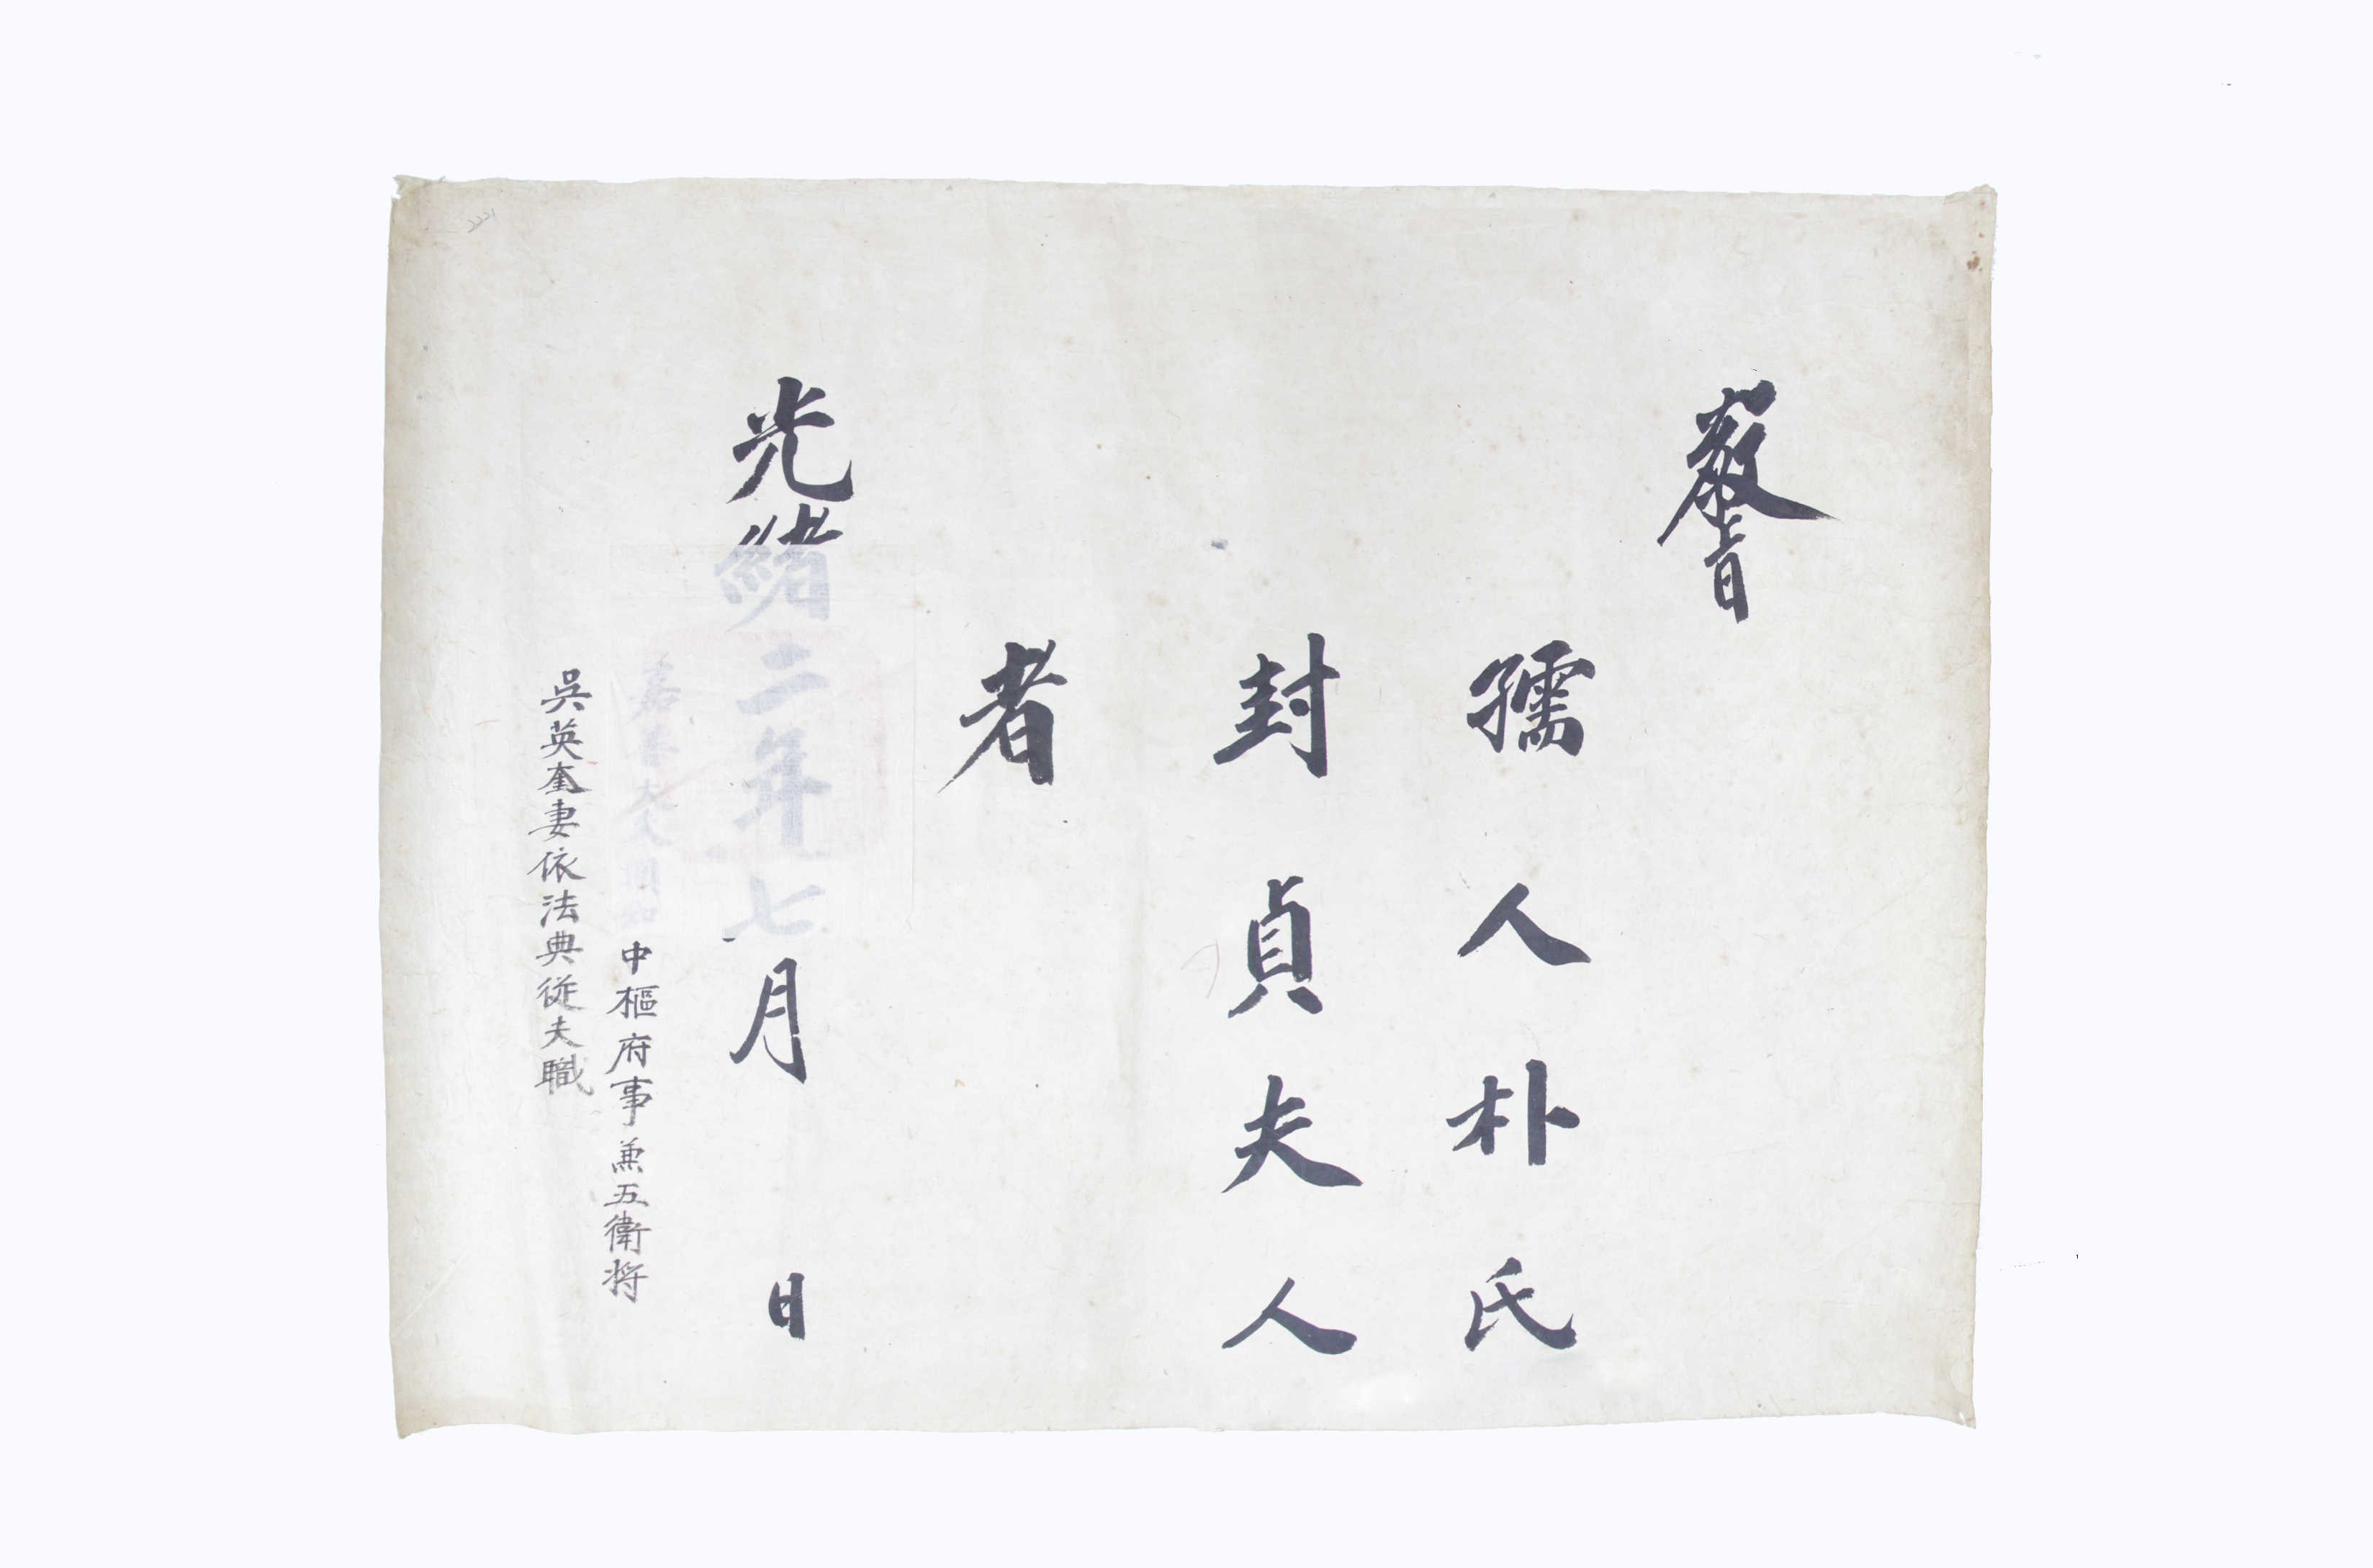 敎旨
孺人朴氏
封貞夫人
者
光緖二年七月 日
嘉善大夫同知中樞府事兼五衛将
吳英奎妻依法典從夫職